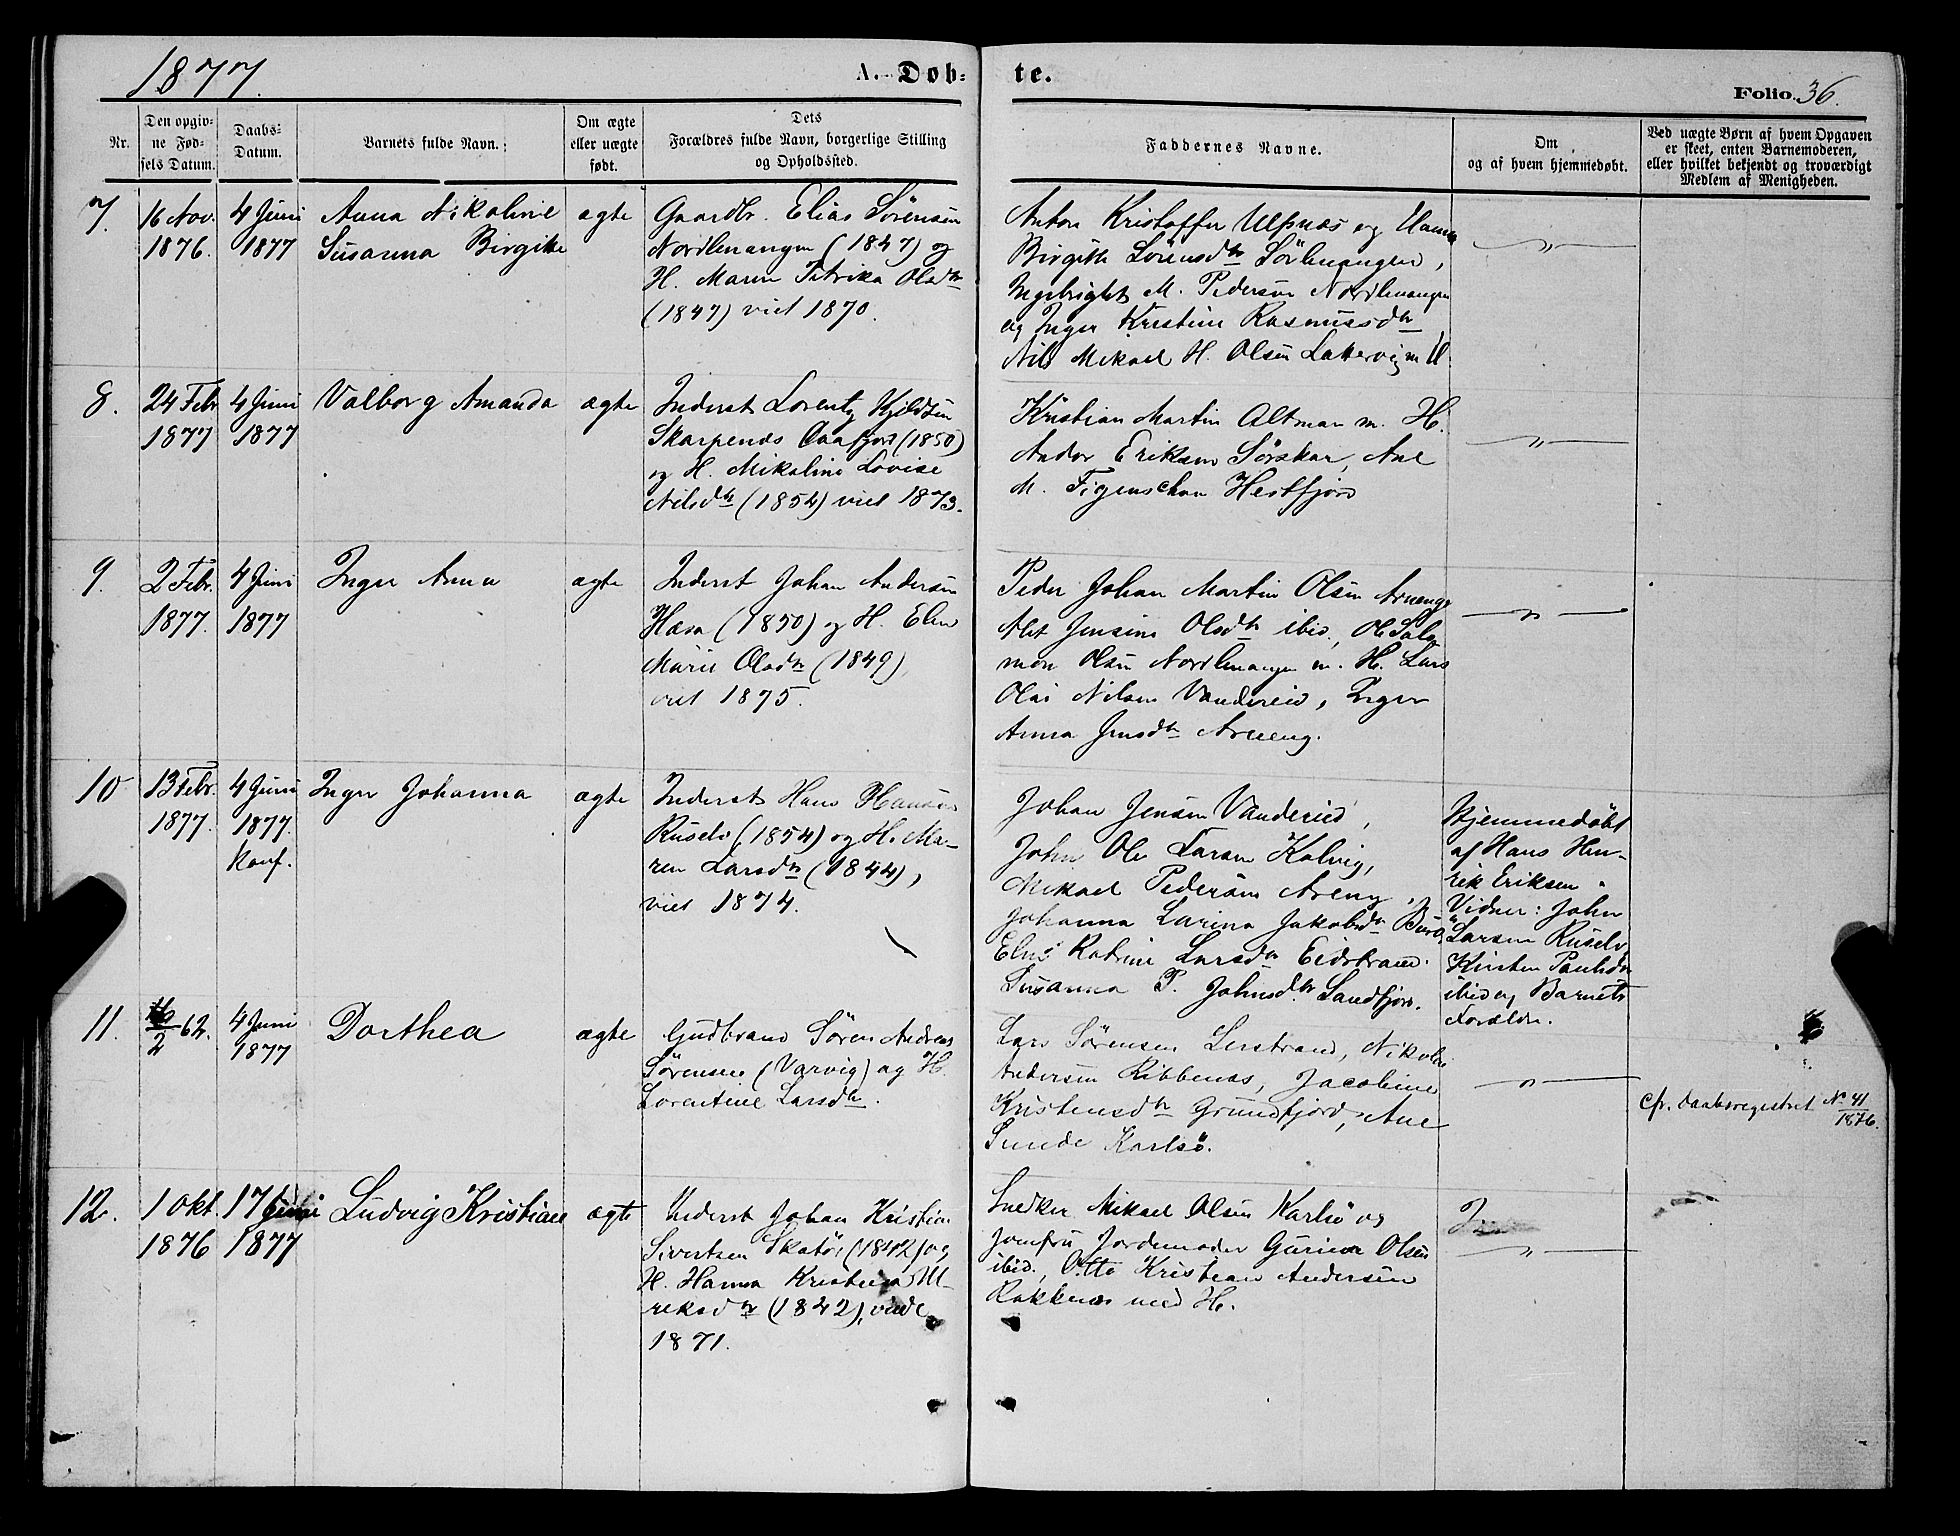 1877.
A. Døb-
te.
Folio 36.
Nr.
Den opgiv-
ne Fød-
sels Datum.
Daabs-
Datum.
Barnets fulde Navn.
Om ægte
eller uægte
født.
Dets
Forældres fulde Navn, borgerlige Stilling
og Opholdssted.
Faddernes Navne.
Om
og af hvem hjemmedøbt.
Ved uægte Børn af hvem Opgaven
er skeet, enten Barnemoderen,
eller hvilket bekjendt og troværdigt
Medlem af Menigheden.
7.
16 Nov.
1876.
4 Juni
1877
Anna Nikoline
Susanna Birgitte
ægte
Gaardbr. Elias Sörensen
Nordlenangen (1847) og
H. Maren Petrika Olsdtr
(1847) viet 1870.
Anton Kristoffer Ulfsnes og Hanna
Birgitte Sörensdtr Sörlenangen,
Ingebrigt M. Pedersen Nordlenangen
og Inger Kristine Rasmusdtr
Nils Mikael H. Olsen Lattervig m H.
8.
24 Febr
1877
4 Juni
1877
Valborg Amanda
ægte
Inderst Lorentz Kjeldsen
Skarpenes (1850)
og H. Mikaline Lovise
Nilsdtr (1854) viet 1873.
Kristian Martin Altman m. H.
Andor Eriksen Sörskar, Ane
M. Figenschau Hestfjord
9.
2 Febr.
1877.
4 Juni
1877
Inger Anna
ægte
Inderst Johan Andersen
(1850) og H. Elen
Marie Olsdtr (1849)
viet 1875.
Peder Johan Martin Olsen Arneng
Jensine Olsdtr ibid, Ole Salo
mon Olsen Nordlenangen m. H. Lars
Olai Nilsen Vandereid, Inger
Anna Jensdtr Arneng.
10
13 Febr.
1877.
4 Juni
1877.
Konf.
Inger Johanna
ægte
Inderst Hans Hansen
Ruselv (1854) og H. Ma-
ren Larsdtr (1844),
viet 1874.
Johan Jensen Vandereid,
John Ole Larsen Kalvig,
Mikael Pedersen Arneng,
Johanna Larina Jakobsdtr
Elen Katrine Larsdtr Eidstrand
Susanna P. Johnsdtr Sandfjord.
Hjemmedöbt
af Hans Hen-
rik Eriksen.
Vidner: John
Larsen Ruselv
Kirsten Paulsdtr
ibid og Barnets
Forældre.
11.
16/2 62.
4 Juni
1877
Dorthea
ægte
Gudbrand Sören Andreas
Sörensen (Varvig) og H.
Lorentine Larsdtr.
Lars Sörensen Lerstrand, Nikolai
Andersen Ribbenes, Jacobine
Kristensdtr Grundfjord, Ane
Sunde Karlsö.
cfr. daabsregistret No 41/1876.
12.
1 Okt.
1876
17 Juni
1877
Ludvig Kristian
ægte
Inderst Johan Kristian
Sivertsen Skatör (1842) og
H. Hanna Kristina Ul-
riksdtr (1842), viede
1871.
Snedker Mikael Olsen Karlsö og
jomfru Jordemoder Gurine Olsen
ibid., Otto Kristian Andersen
Rakkenes med H.